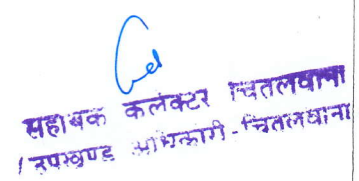 सहायक कलेक्टर चितलवाना
/ उपखण्ड अधिकारी - चितलवाना